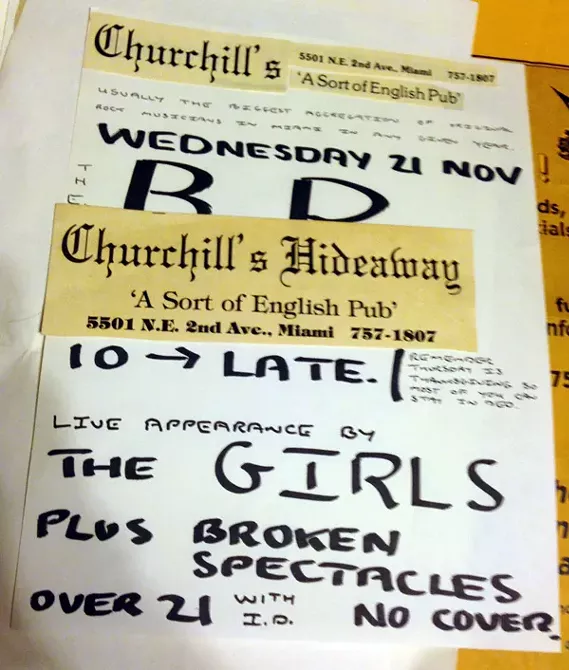 Churchill's
5501 N.E. 2nd Ave., Miami 757-1807
'A Sort of English Pub'
USUALLY THE BIGGEST AGGREGATION OF ORIGINAL
ROCK MUSICIANS IN MIAMI IN ANY GIVEN YEAR.
WEDNESDAY 21 NOV
THE
Churchill's Hideaway
'A Sort of English Pub'
5501 N.E. 2nd Ave., Miami 757-1807
10 → LATE.
REMEMBER
THURSDAY IS
THANKSGIVING SO
MOST OF YOU CAN
STAY IN BED.
LIVE APPEARANCE BY
THE GIRLS
PLUS BROKEN
SPECTACLES
OVER 21 WITH I.D. NO COVER.